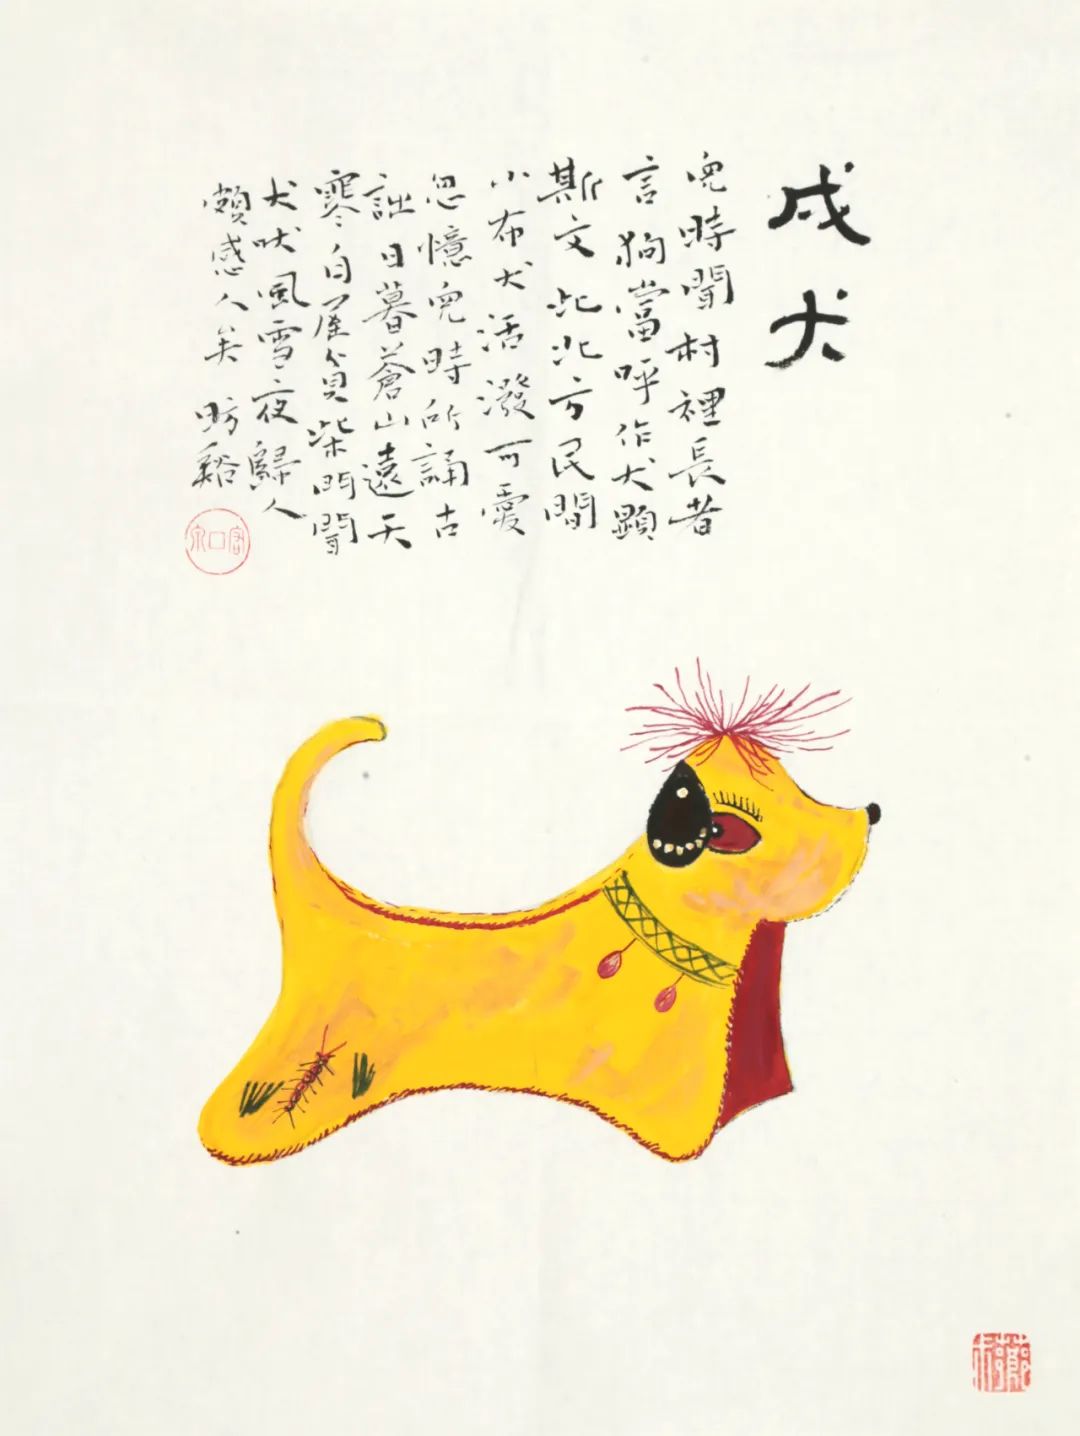 戌犬
兒時聞村裡長者
言狗當呼作犬顯
斯文此北方民間
小布犬活潑可愛
忽憶兒時所誦古
詩日暮蒼山遠天
寒白屋貧柴門聞
犬吠風雪夜歸人
頗感人矣 昉谿